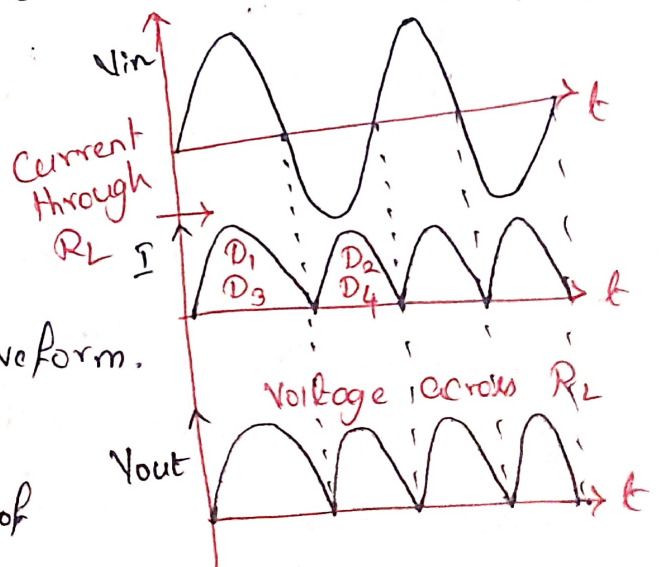 Vin
t
Current
through
RL
I
D1
D3
D2
D4
t
veform.
Voltage across RL
Vout
t
of